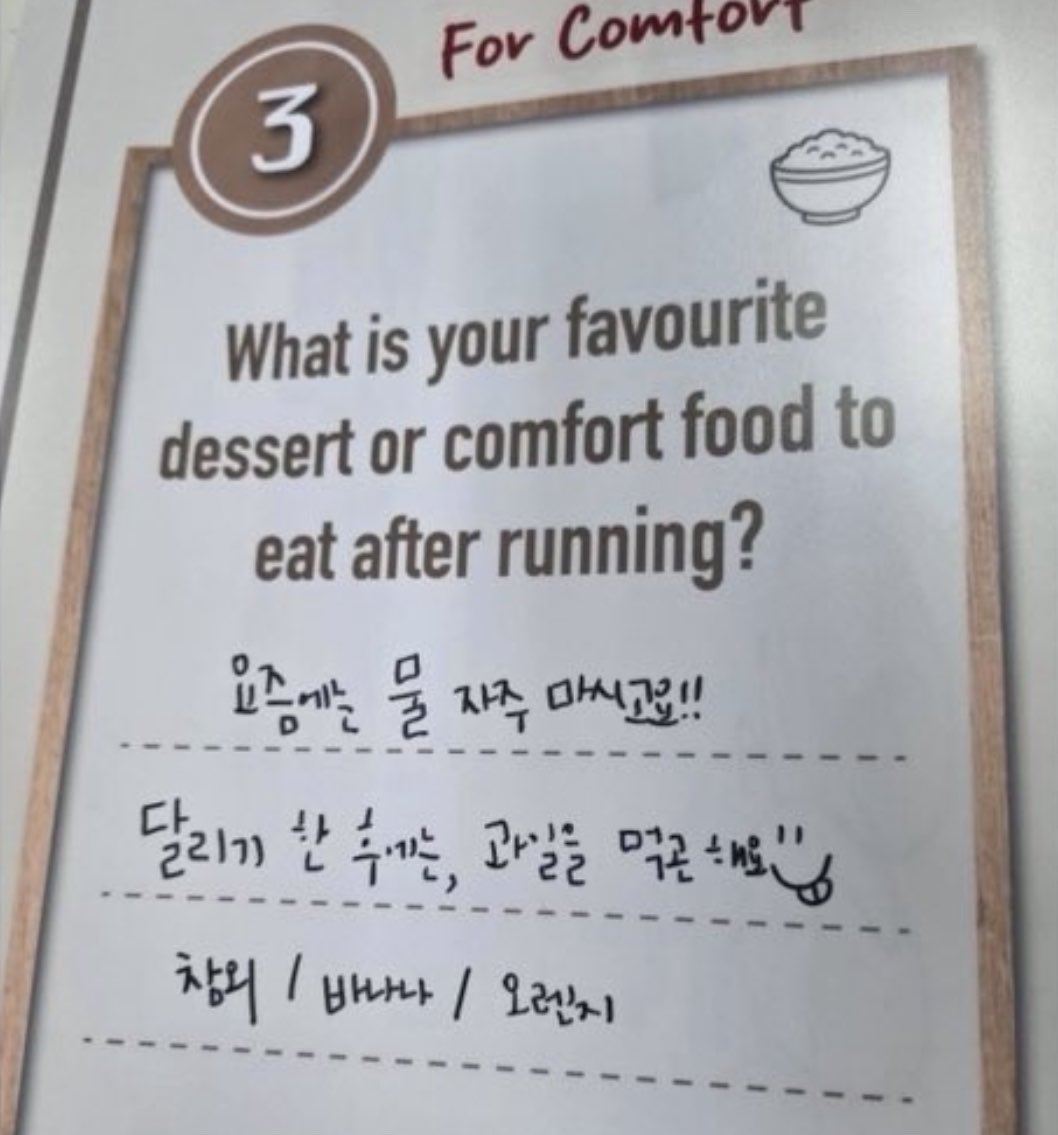 For Comfort
3
What is your favourite
dessert or comfort food to
eat after running?
요즘에는 물 자주 마시고요!!
달리기 한 후에는, 과일을 먹곤 해요
참외 / 바나나 / 오렌지